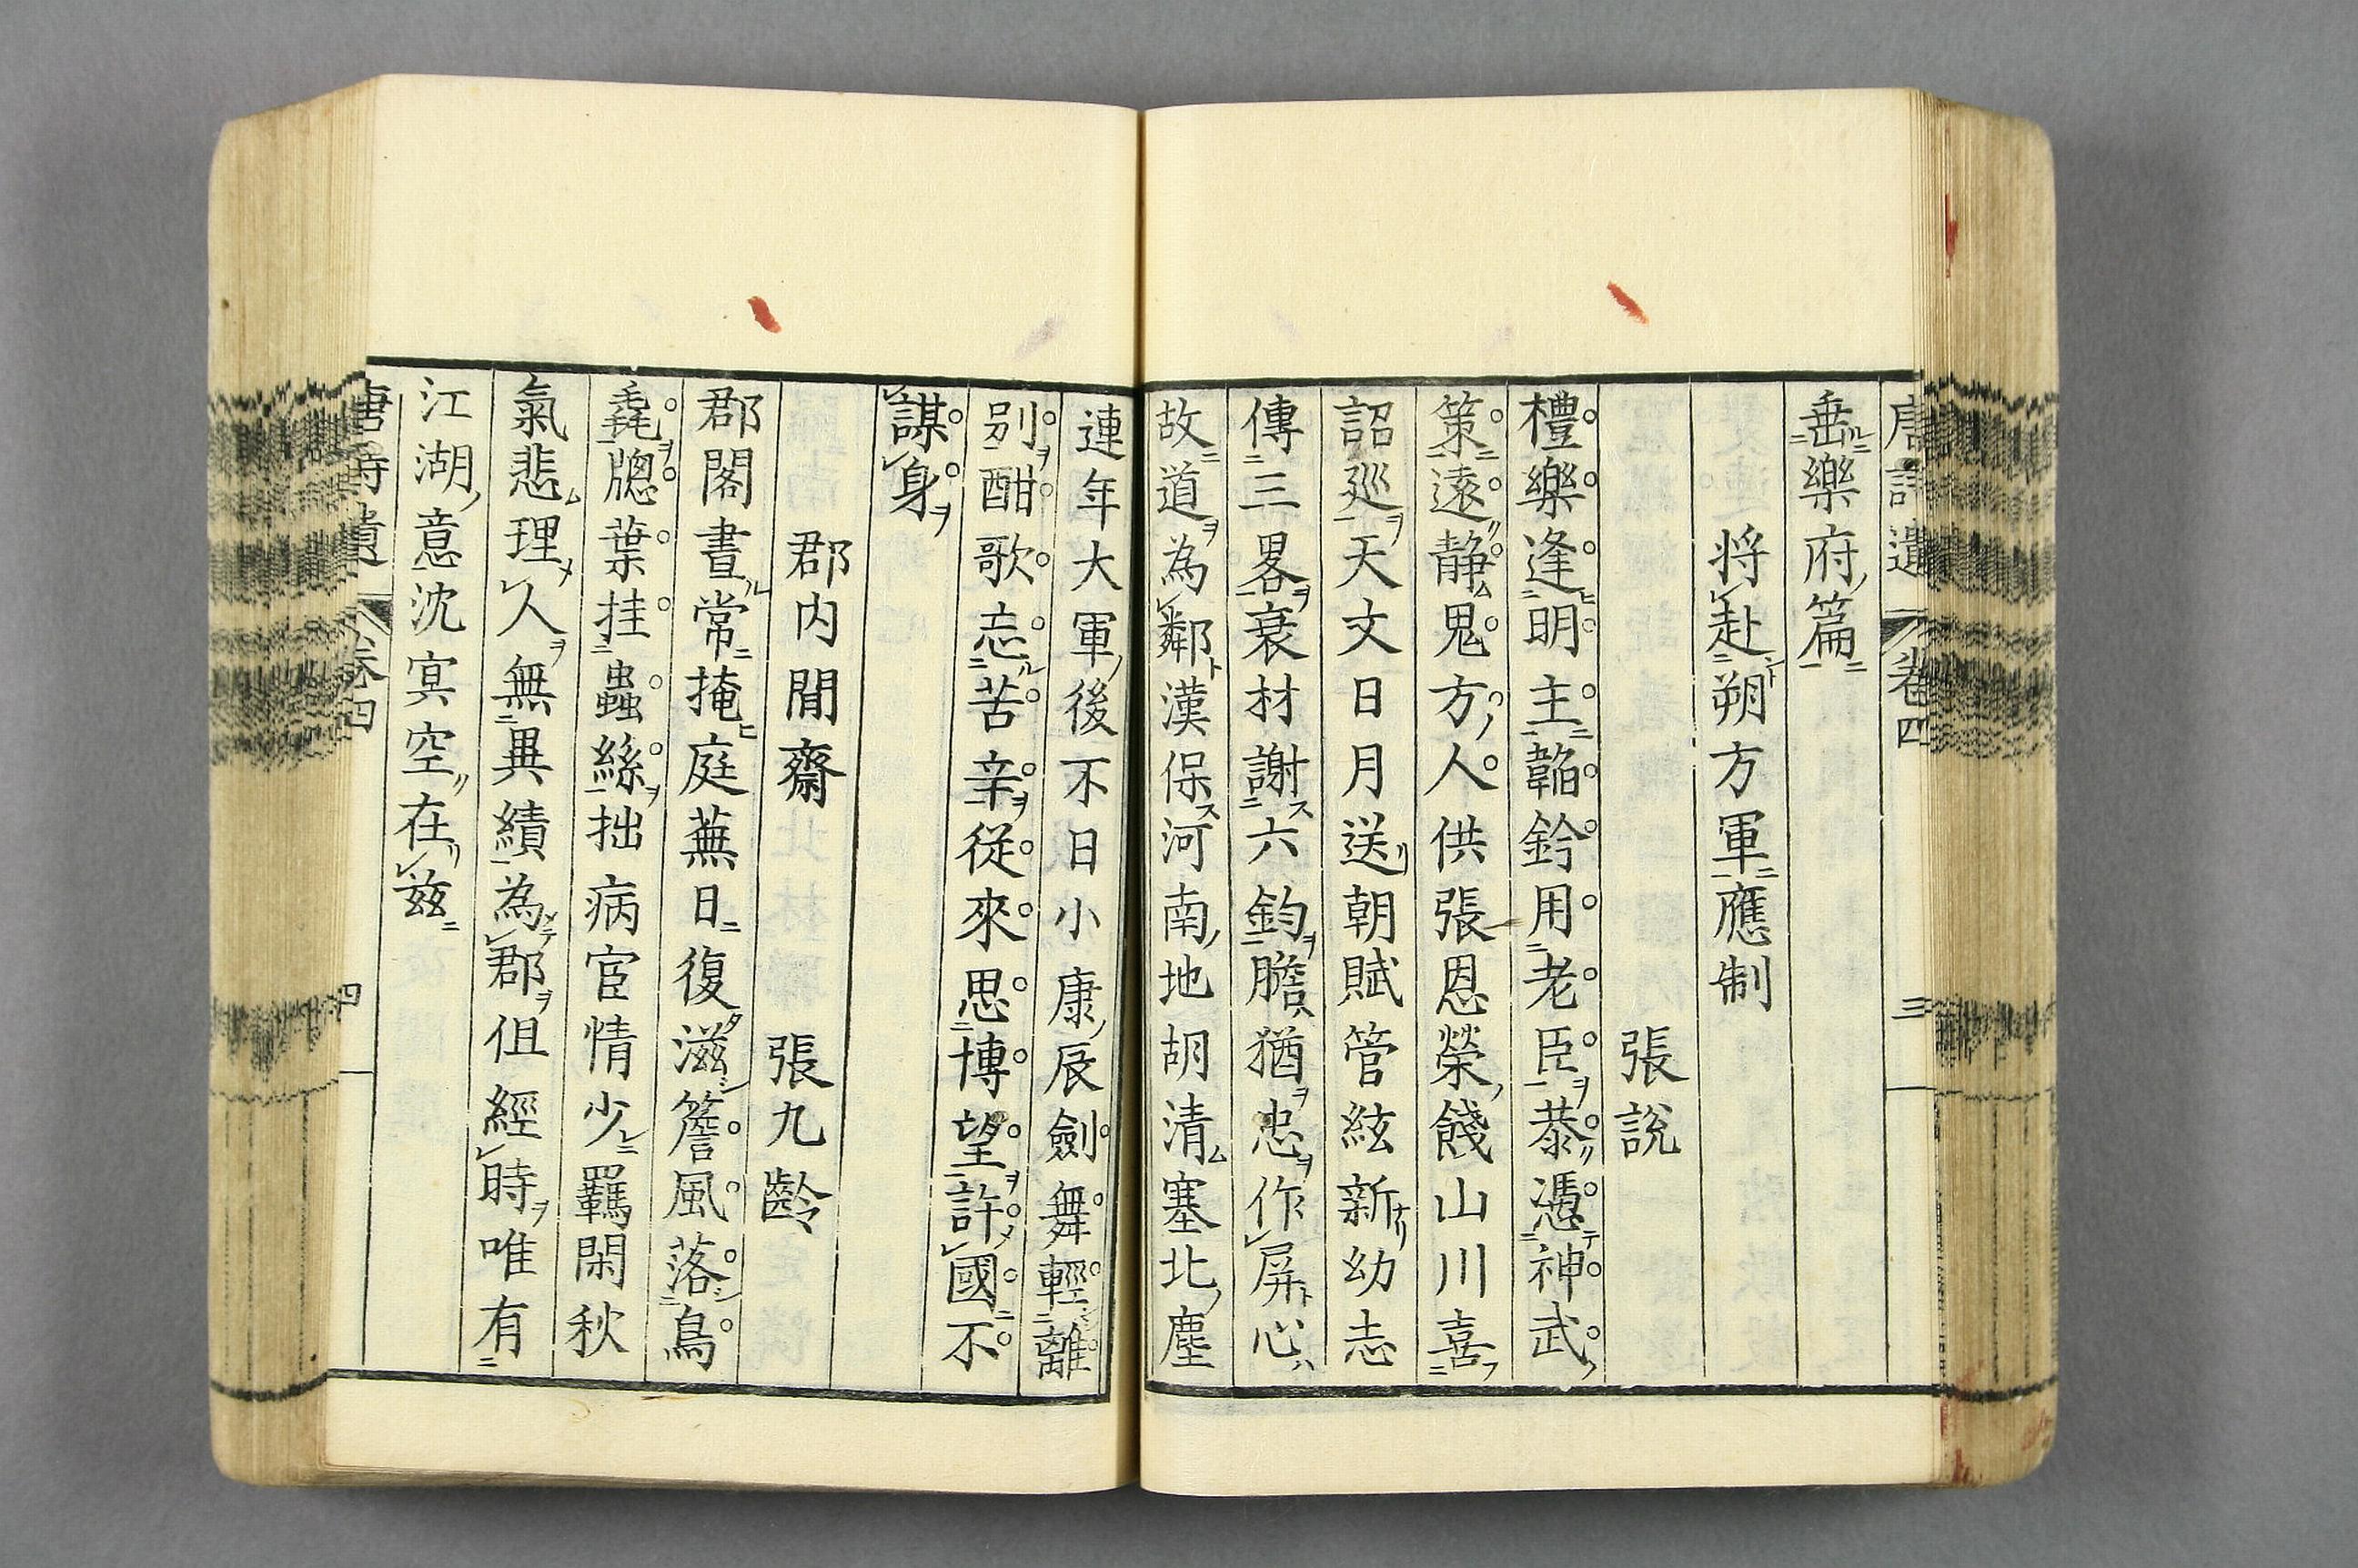 唐詩遺 卷四 三
垂樂府篇
将赴朔方軍應制
張說
禮樂逢明主韜鈐用老臣恭憑神武
策遠静鬼方人供張恩榮餞山川喜
詔廵天文日月送朝賦管絃新幼志
傳三畧衰材謝六鈞膽猶忠作屏心
故道為鄰漢保河南地胡清塞北塵
連年大軍後不日小康辰劍舞輕離
别酣歌忘苦辛從來思博望許國不
謀身
郡内閒齋
張九齡
郡閣晝常掩庭蕪日復滋簷風落鳥
毳牕葉挂蟲絲拙病宦情少羈閑秋
氣悲理人無異績為郡伹經時唯有
江湖意沈㝠空在兹
唐詩遺 卷四 四